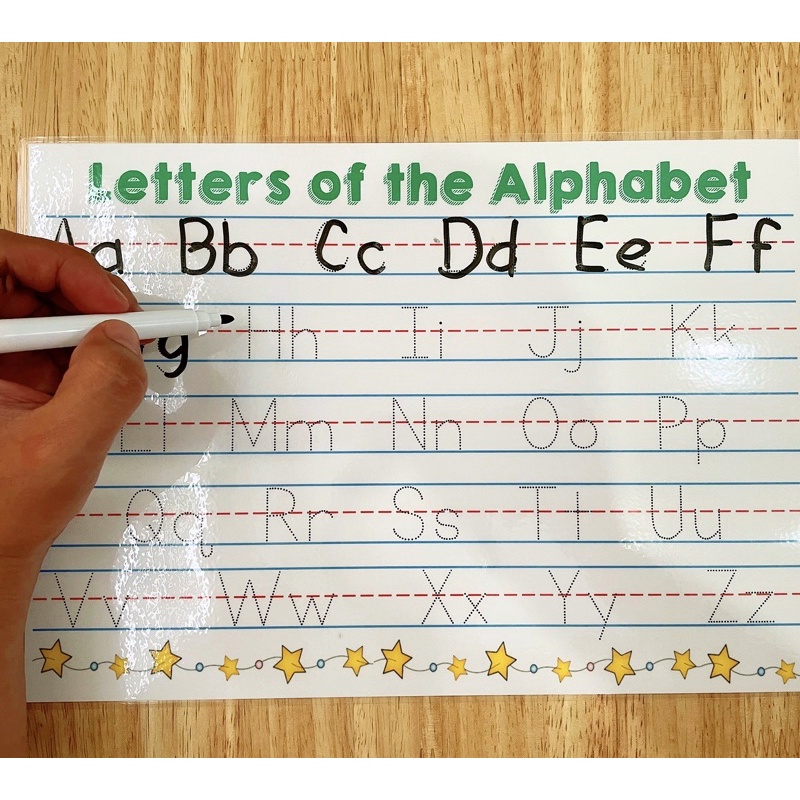 Letters of the Alphabet
Aa Bb Cc Dd Ee Ff
g Hh Ii Jj Kk
Ll Mm Nn Oo Pp
Qq Rr Ss Tt Uu
Vv Ww Xx Yy Zz